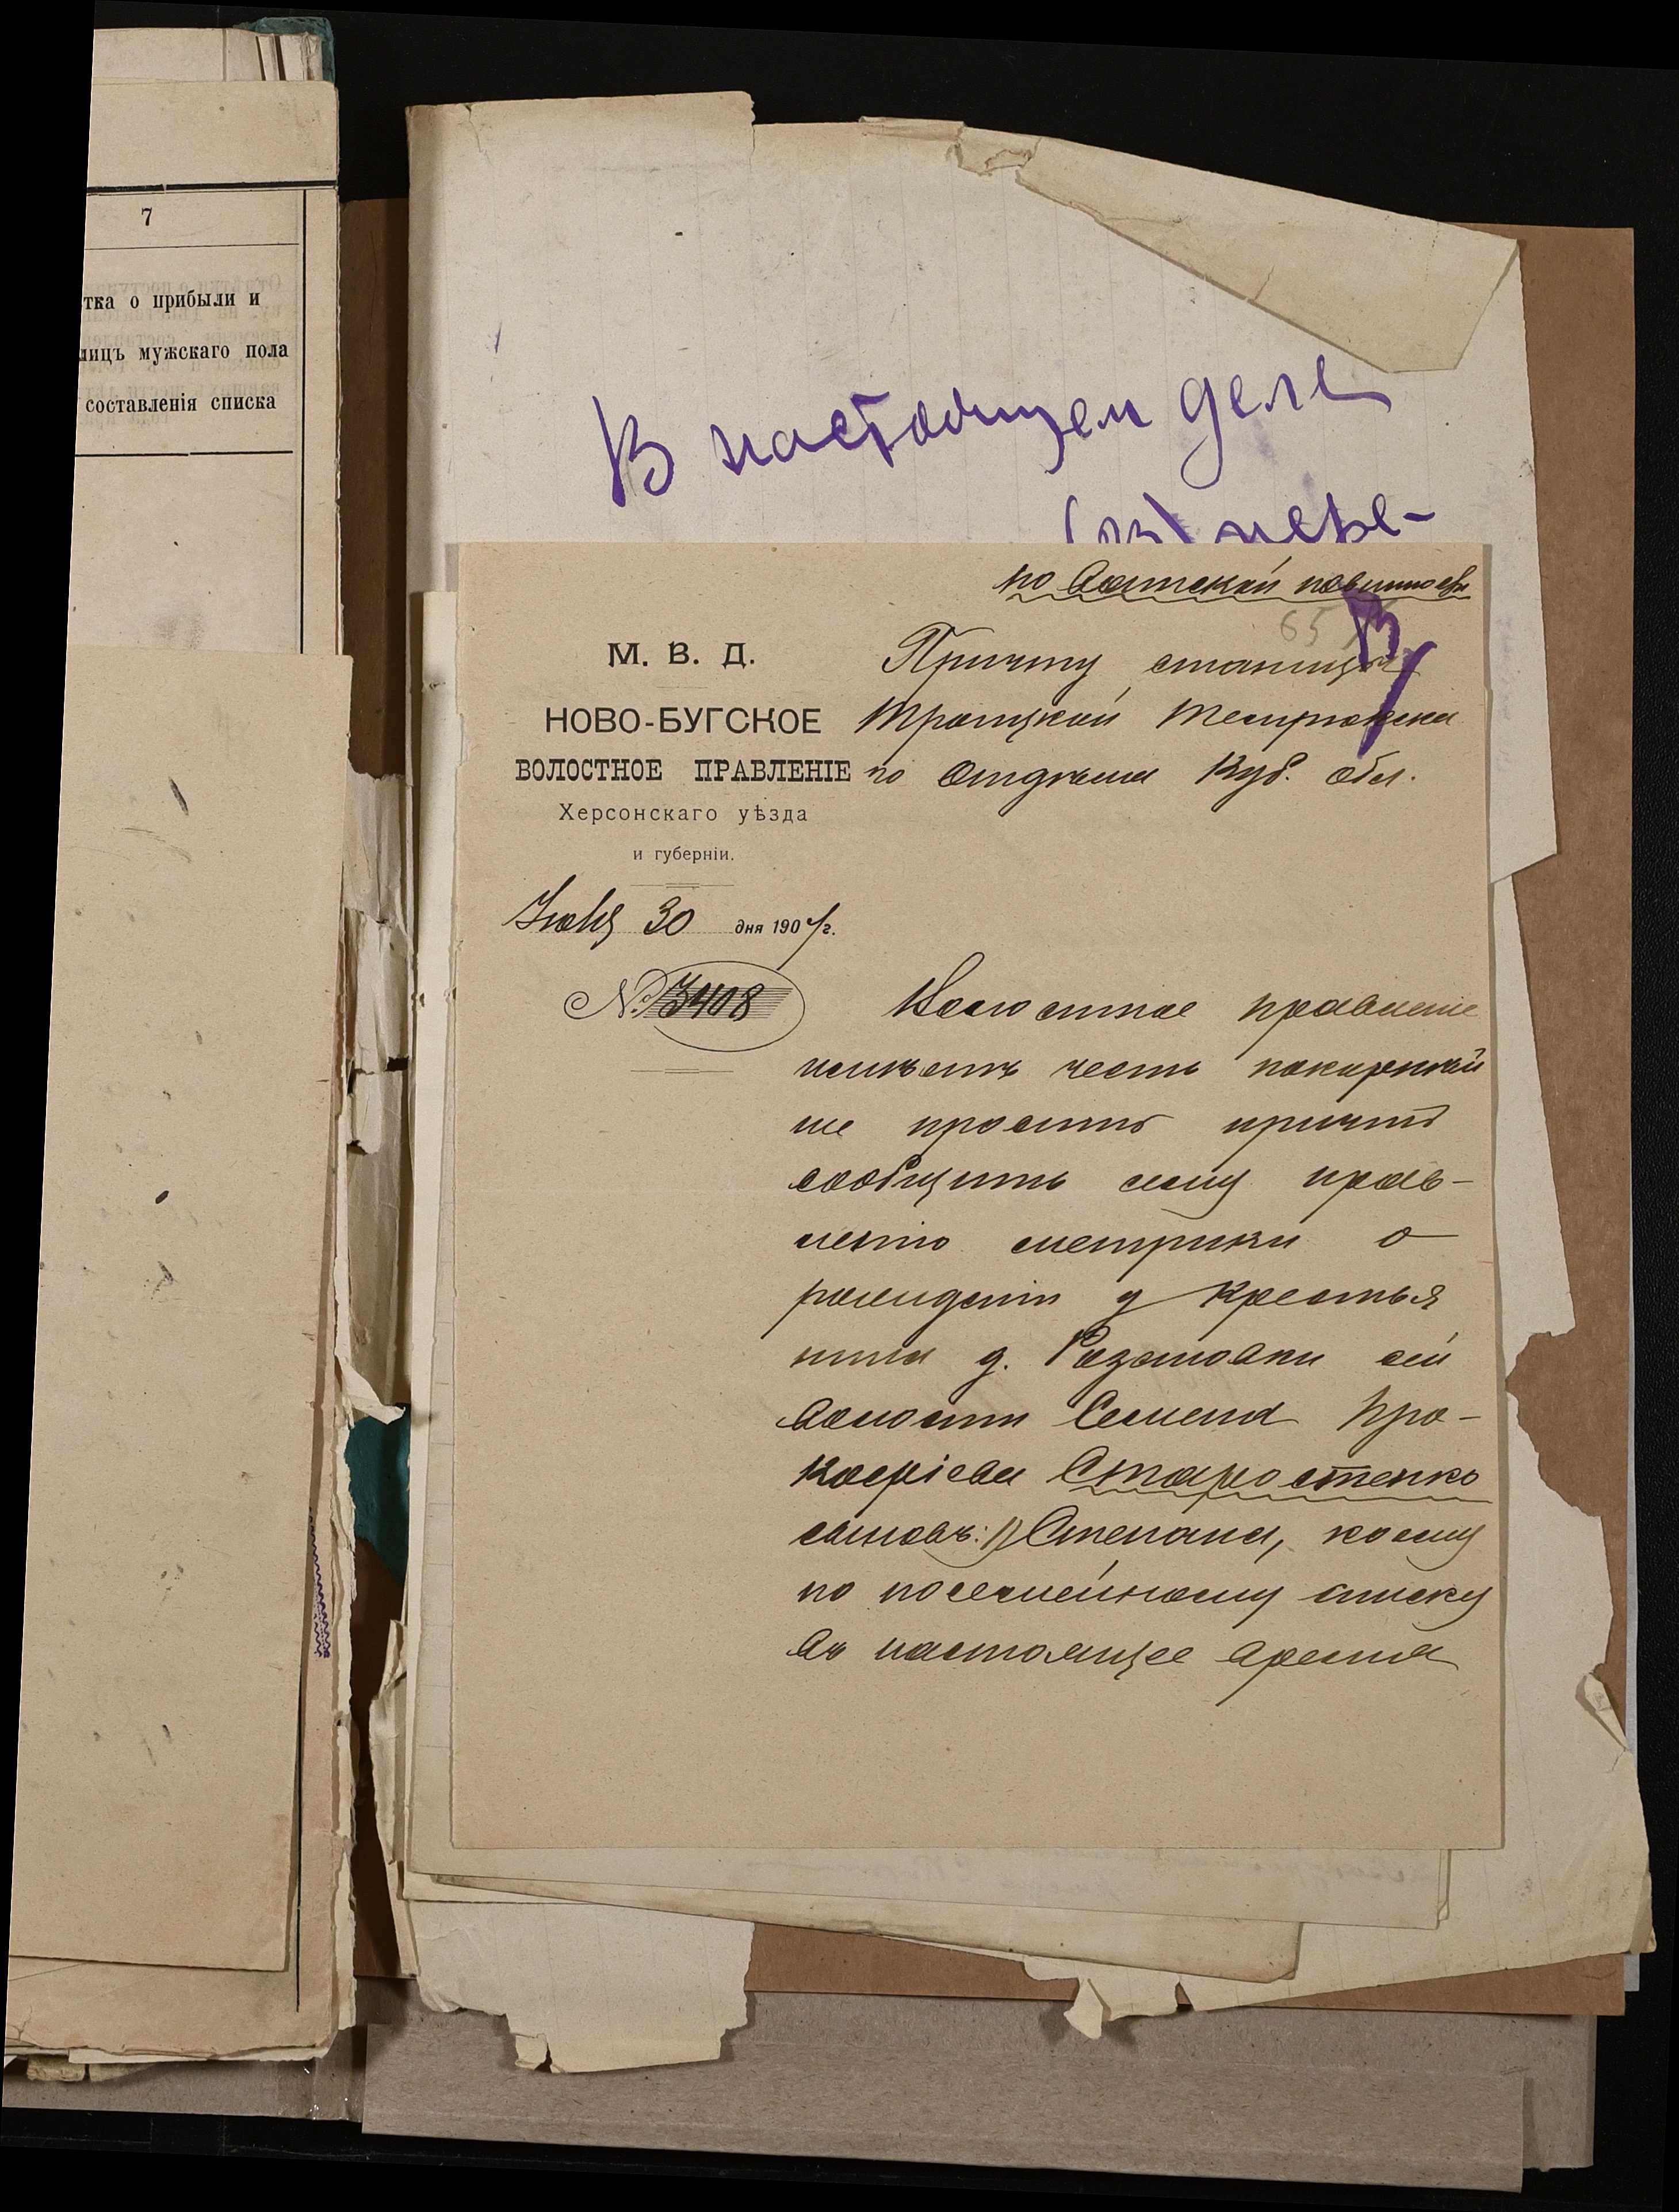 7
тка о прибыли и
лицъ мужскаго пола
составленія списка
В настоящем деле
по Воинской повинности
65
М. В. Д.
НОВО-БУГСКОЕ
ВОЛОСТНОЕ ПРАВЛЕНІЕ
Херсонскаго уѣзда
и губерніи.
30 дня 190 г.
№ 3408
Причту станицы
Троицкой Темрюкска
го Отдѣла Куб. обл.
Волостное правленіе
имѣетъ честь покорнѣй
ше проситъ причтъ
сообщить сему прав-
ленію метрики о
рожденіи у крестья
нина д. Розановки сей
волости Семена Про-
кофіева Старостенко
сыновъ: 1) Степана, коему
по посемейному списку
въ настоящее время